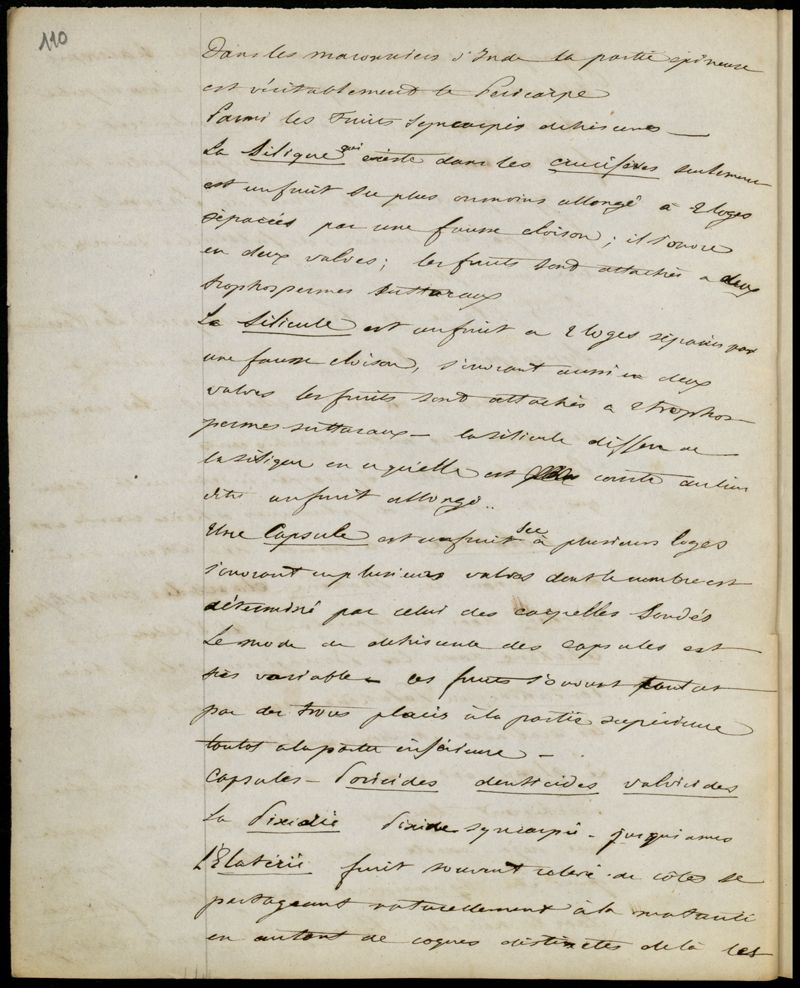 110
Dans les maronniers d'Inde la partie épineuse
est véritablement le Péricarpe
Parmi les Fruits Syncarpés dehiscens —
La Silique qui existe dans les crucifères seulement
est un fruit sec plus ou moins allongé à 2 loges
séparées par une fausse cloison ; il s'ouvre
en deux valves ; les fruits sont attachés a deux
trophospermes suturaux
La Silicule est un fruit a 2 loges séparées par
une fausse cloison, s'ouvrant aussi en deux
valves les fruits sont attachés a 2 trophos-
permes suturaux — la silicule differe de
la silique en ce qu'elle est courte au lieu
d'être un fruit allongé..
Une Capsule est un fruit sec à plusieurs loges
s'ouvrant en plusieurs valves dont le nombre est
déterminé par celui des carpelles soudés
Le mode de dehiscence des capsules est
très variable — ces fruits s'ouvrent tantot
par des trous placés à la partie supérieure
tantot a la partie inférieure —
Capsules — Poricides denticides valvicides
La Pixidie Pixide syncarpé — jusquiames
L'Elatérie fruit souvent relevé de côtes se
partageant naturellement à la maturité
en autant de coques distinctes de là les